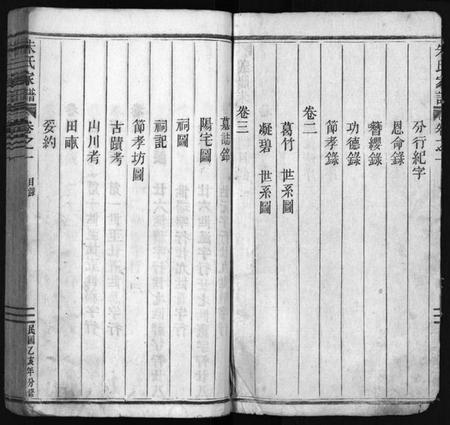 朱氏家譜
卷之一
分行紀字
恩命錄
簪纓錄
功德錄
節孝錄
卷二
葛竹 世系圖
凝碧 世系圖
卷三
墓誌錄
陽宅圖
祠圖
祠記
節孝坊圖
古蹟考
山川考
田畝
妥約
朱氏家譜
卷之一
目錄
民國乙亥年分修